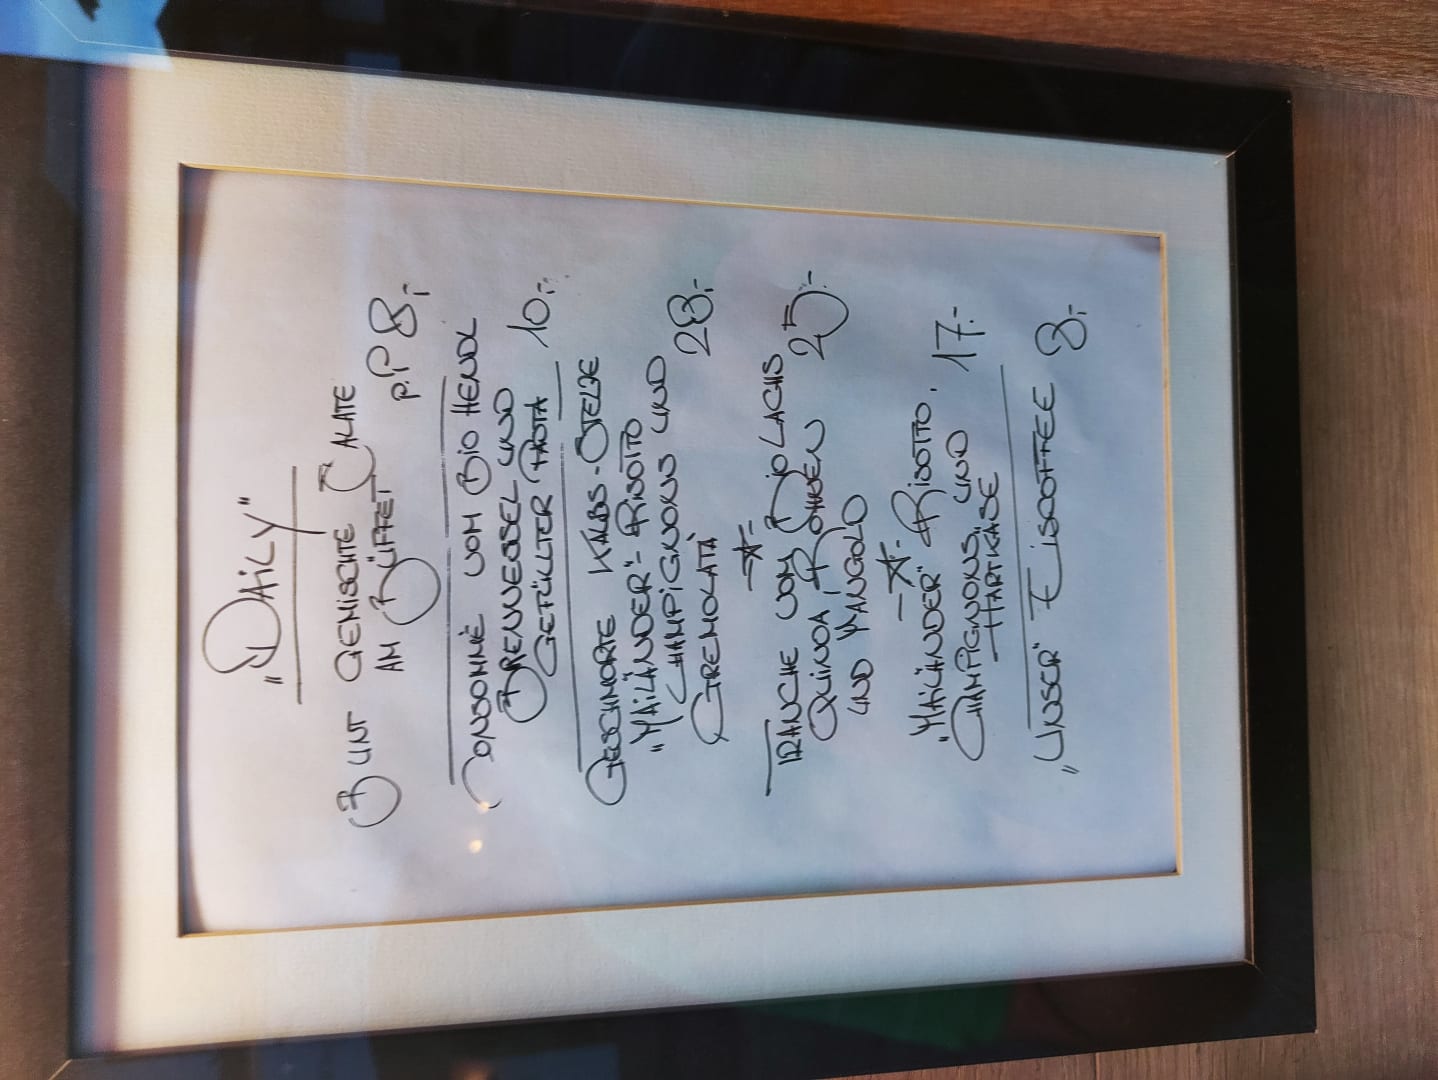 "DAiLY"
BUNT GEMISCHTE SALATE
AM BÜFFET p.P 8,-
CONSOMMÉ VOM BIO HENDL
BRENNESSEL UND
GEFÜLLTER PASTA 10,-
GESCHMORTE KALBS-STELZE
"MAiLÄNDER"-RISOTTO
CHAMPiGNONS UND
GREMOLATA 28,-
-*-
TRANCHE VOM BiO LACHS
QUiNOA, BOHNEN 25,-
UND MANGOLD
-*-
"MAiLÄNDER" RISOTTO,
CHAMPiGNONS, UND 17,-
HARTKÄSE
"UNSER" EISKAFFEE 8,-